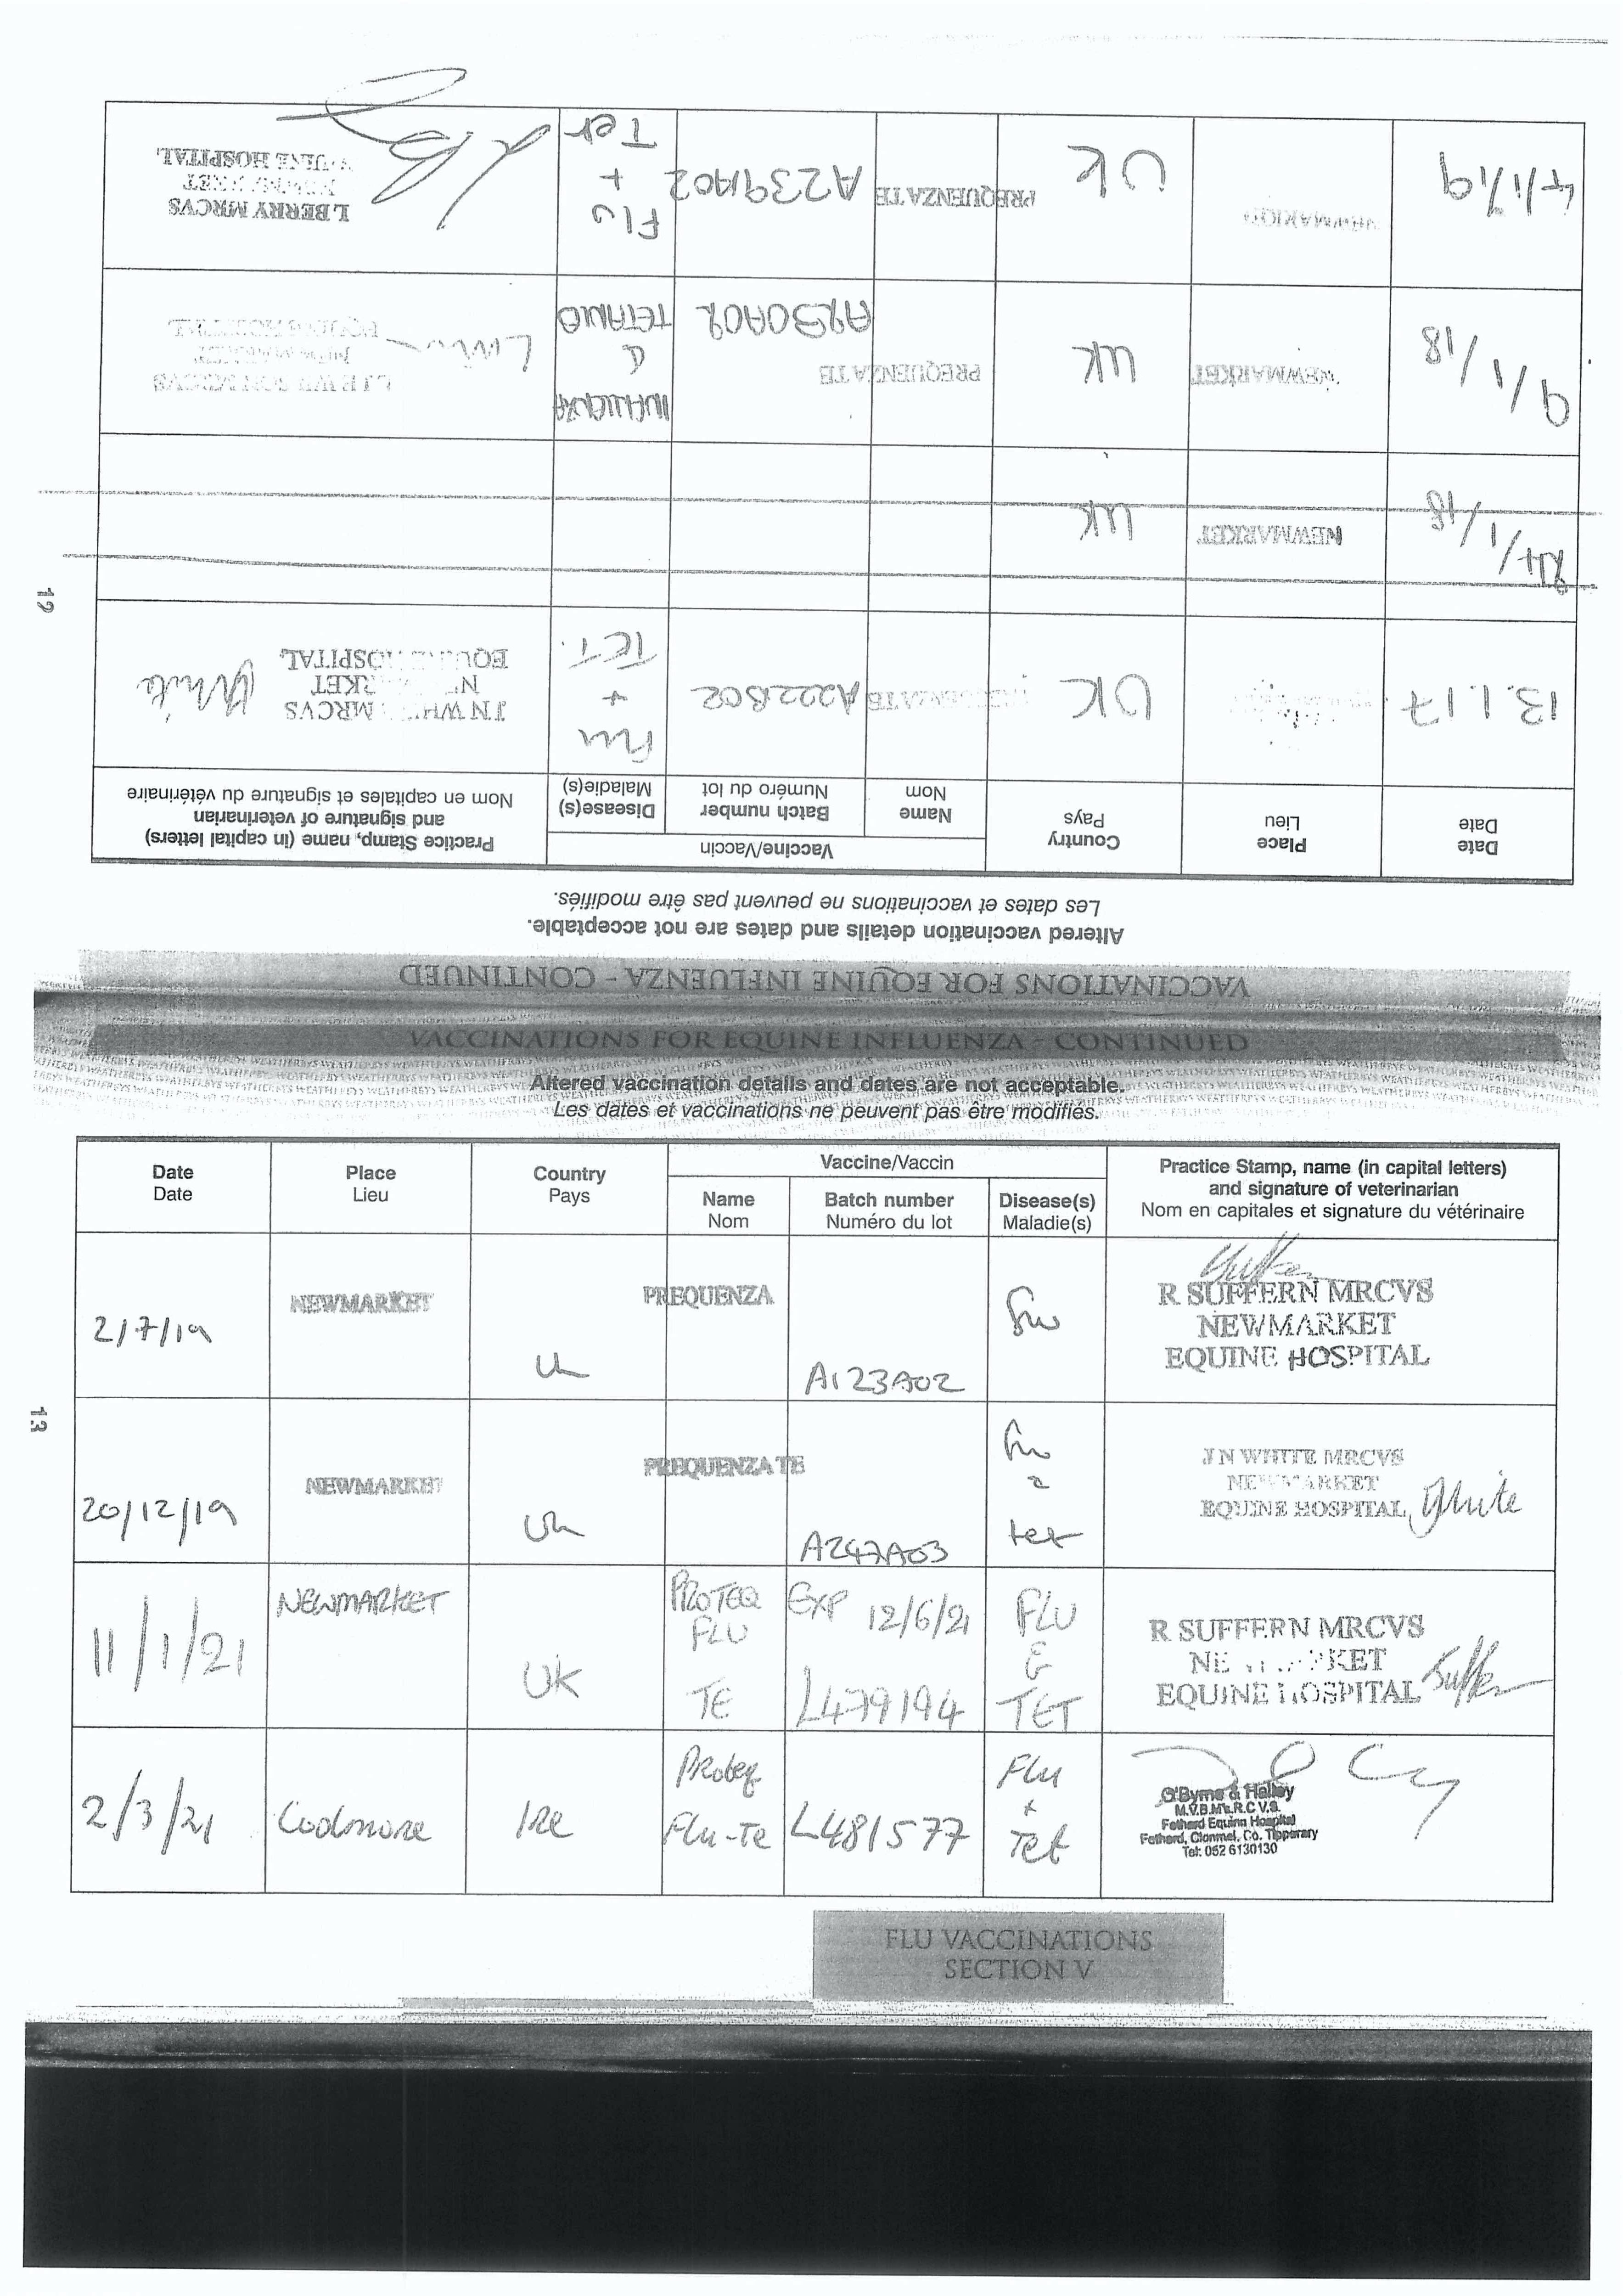 VACCINATIONS FOR EQUINE INFLUENZA - CONTINUED
Altered vaccination details and dates are not acceptable.
Les dates et vaccinations ne peuvent pas être modifiés.
Date
Date
Place
Lieu
Country
Pays
Vaccine/Vaccin
Name
Nom
Batch number
Numéro du lot
Disease(s)
Maladie(s)
Practice Stamp, name (in capital letters)
and signature of veterinarian
Nom en capitales et signature du vétérinaire
13.1.17
UK
A222B02
Flu
+
TET.
J N WHITE MRCVS
EQUINE HOSPITAL
White
NEWMARKET
UK
9/1/18
NEWMARKET
UK
PREQUENZA TE
A250A02
INFLUENZA
&
TETANUS
4/1/19
NEWMARKET
UK
PREQUENZA TE
A239A02
Flu
+
Tet
L BERRY MRCVS
NEWMARKET
EQUINE HOSPITAL
12
VACCINATIONS FOR EQUINE INFLUENZA - CONTINUED
Altered vaccination details and dates are not acceptable.
Les dates et vaccinations ne peuvent pas être modifiés.
Date
Date
Place
Lieu
Country
Pays
Vaccine/Vaccin
Name
Nom
Batch number
Numéro du lot
Disease(s)
Maladie(s)
Practice Stamp, name (in capital letters)
and signature of veterinarian
Nom en capitales et signature du vétérinaire
2/7/19
NEWMARKET
Uk
PREQUENZA
A123A02
Flu
R SUFFERN MRCVS
NEWMARKET
EQUINE HOSPITAL
20/12/19
NEWMARKET
Uk
PREQUENZA TE
A247A03
Flu
tet
J N WHITE MRCVS
NEWMARKET
EQUINE HOSPITAL
White
11/1/21
NEWMARKET
UK
PROTEQ
FLU
TE
EXP 12/6/21
L479194
FLU
&
TET
R SUFFERN MRCVS
NEWMARKET
EQUINE HOSPITAL
2/3/21
Coolmore
Ire
Proteq
Flu-Te
L481577
Flu
+
Tet
O'Byrne & Halley
M.V.B.M's.R.C.V.S.
Fethard Equine Hospital
Fethard, Clonmel, Co. Tipperary
Tel: 052 6130130
13
FLU VACCINATIONS
SECTION V